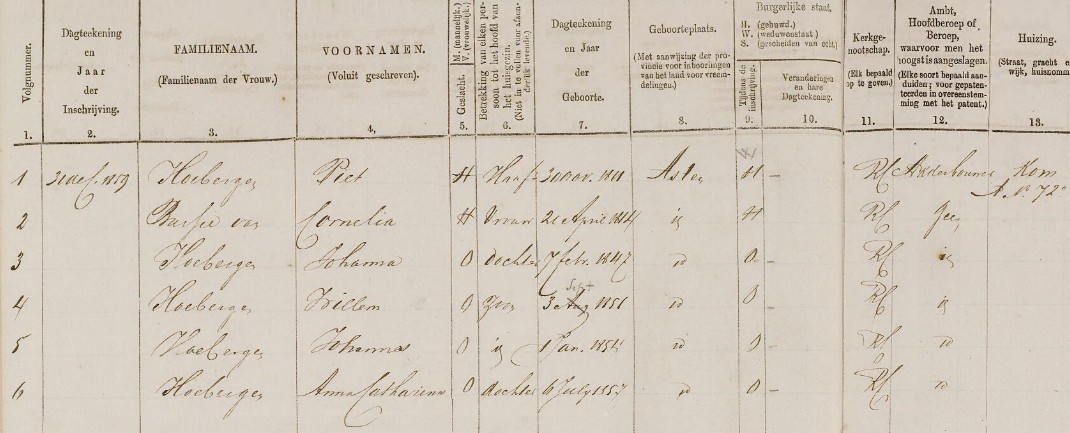 Volgnummer.
Dagteekening en Jaar der Inschrijving.
FAMILIENAAM. (Familienaam der Vrouw.)
VOORNAMEN. (Voluit geschreven.)
Geslacht. M. (mannelijk.) V. (vrouwelijk.)
Betrekking van elken persoon tot het hoofd van het huisgezin. (Niet in te vullen voor afzonderlijk levende.)
Dagteekening en Jaar der Geboorte.
Geboorteplaats. (Met aanwijzing der provincie voor inboorlingen van het land voor vreemdelingen.)
Burgerlijke staat.
H. (gehuwd.)
W. (weduwenstaat)
S. (gescheiden van echt.)
Tijdens de inschrijving.
Veranderingen en hare Dagteekening.
Kerkgenootschap. (Elk bepaald op te geven.)
Ambt, Hoofdberoep of Beroep, waarvoor men het hoogst is aangeslagen. (Elke soort bepaald aanduiden; voor gepatenteerden in overeenstemming met het patent.)
Huizing. (Straat, gracht e wijk, huisnomm
1. 2. 3. 4. 5. 6. 7. 8. 9. 10. 11. 12. 13.
1 31 dec. 1859 Hoeberge Piet H Hoofd 20 Nov. Asten H - RC Akkerbouwer Kom
A. No 72
2 Cornelia H Vrouw 21 April 1814 id H - RC Geen
3 Hoeberge Johanna O dochter 7 febr. 1847 id O - RC id
Sept
4 Hoeberge Willem O Zoon 3 Aug 1851 id O - RC id
5 Hoeberge Johannes O id 1 Jan. 1854 id O - RC id
6 Hoeberge Anna Catharina O dochter 6 July 1857 id O - RC id